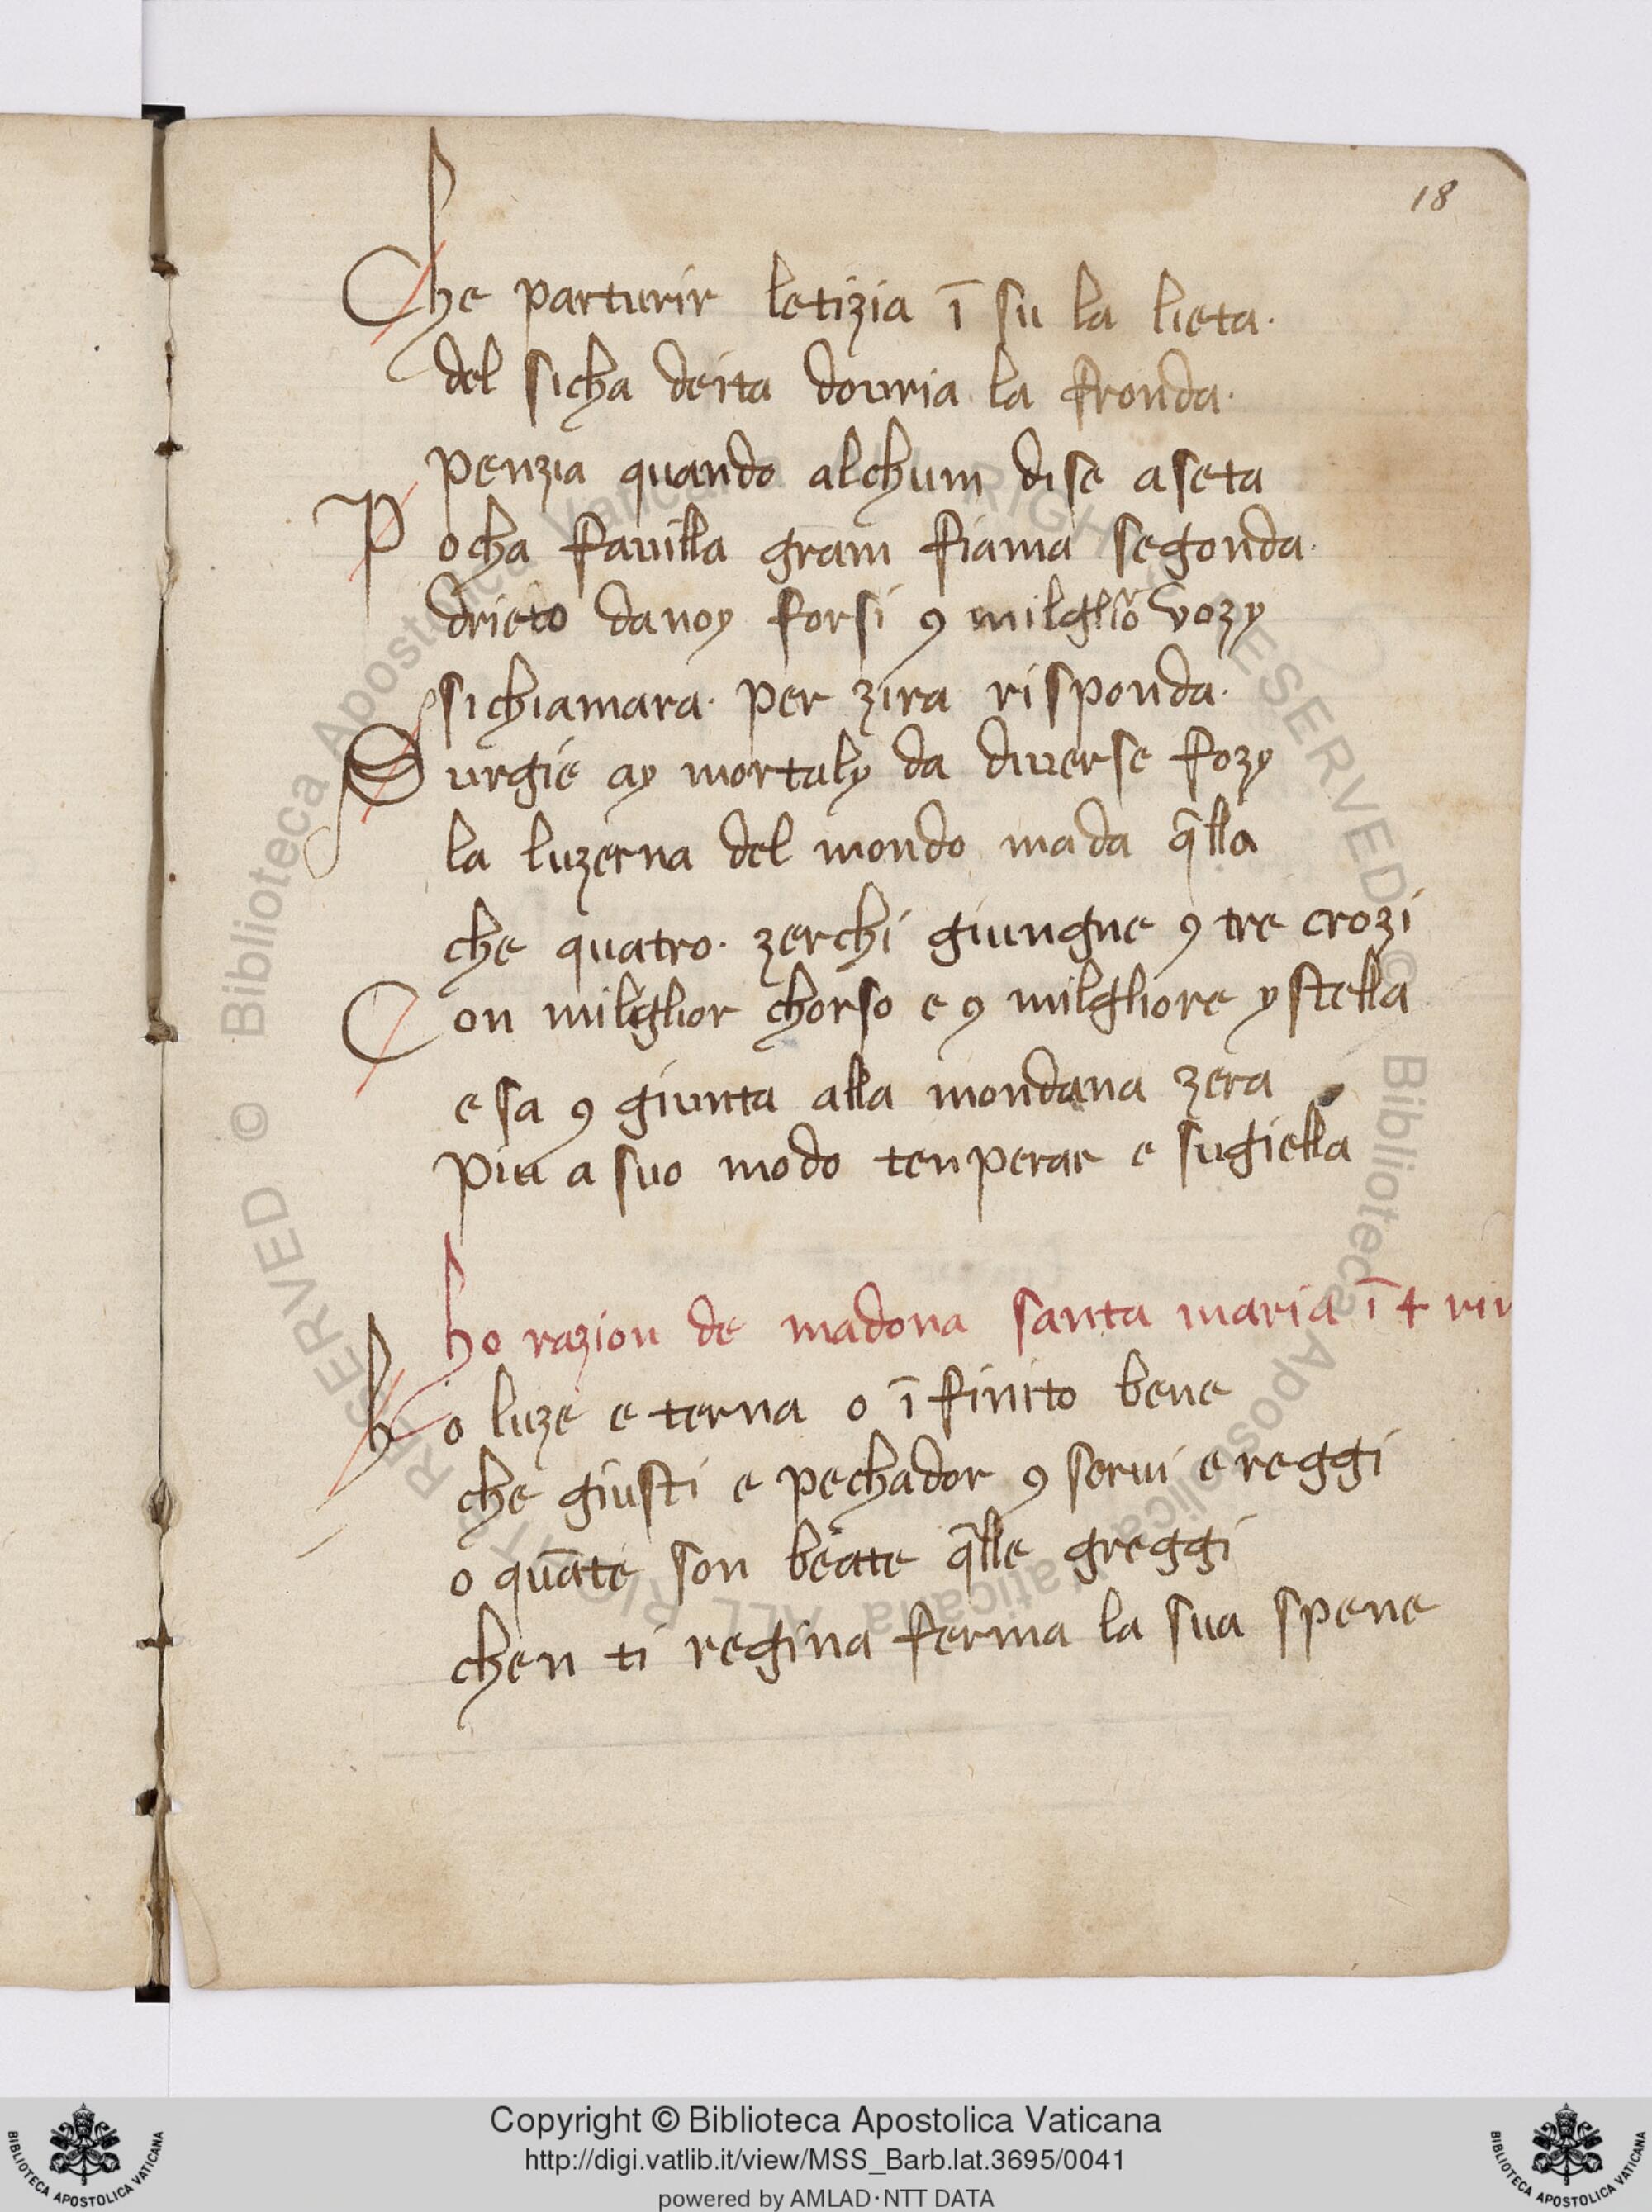 18
Che parturir letizia ī su la lieta·
del ficha deita douria la fronda·
penzia quando alchum di se aseta
P ocha fauilla gram fiama segonda·
drieto da noy forsi ꝯ milghīo vozy
si chiamara· per zira risponda·
S urgie ay mortaly da diuerse fozy
la luzerna del mondo ma da q̄lla
che quatro· zerchi giungne ꝯ tre crozi
C on milglior chorso e ꝯ milgliore ystella
esa ꝯ giunta alla mondana zera
piu a suo modo tenperar e sugiella
ho razion de madona santa maria ī 4 rin
h o luze e terna o ī finito bene
che giusti e pechador ꝯ serui e reggi
o quāte son beate q̄lle greggi
chen ti regina ferma la sua spene
© Biblioteca Apostolica Vaticana ALL RIGHTS RESERVED
© Biblioteca Apostolica Vaticana ALL RIGHTS RESERVED
Copyright © Biblioteca Apostolica Vaticana
http://digi.vatlib.it/view/MSS_Barb.lat.3695/0041
powered by AMLAD·NTT DATA
BIBLIOTECA APOSTOLICA VATICANA
BIBLIOTECA APOSTOLICA VATICANA